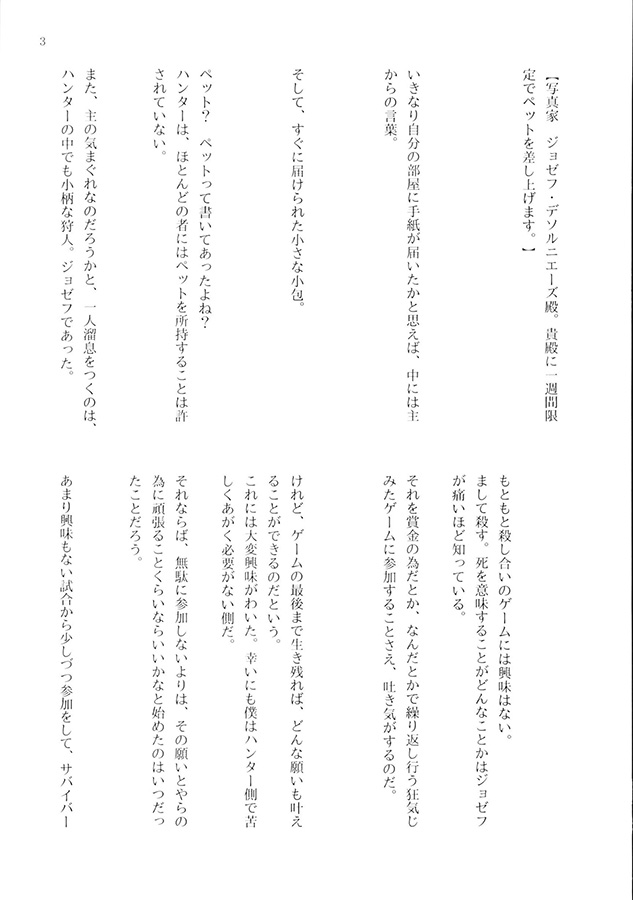 【写真家　ジョゼフ・デソルニエーズ殿。貴殿に一週間限
定でペットを差し上げます。】
いきなり自分の部屋に手紙が届いたかと思えば、中には主
からの言葉。
そして、すぐに届けられた小さな小包。
ペット？　ペットって書いてあったよね？
ハンターは、ほとんどの者にはペットを所持することは許
されていない。
また、主の気まぐれなのだろうかと、一人溜息をつくのは、
ハンターの中でも小柄な狩人。ジョゼフであった。
もともと殺し合いのゲームには興味はない。
まして殺す。死を意味することがどんなことかはジョゼフ
が痛いほど知っている。
それを賞金の為だとか、なんだとかで繰り返し行う狂気じ
みたゲームに参加することさえ、吐き気がするのだ。
けれど、ゲームの最後まで生き残れば、どんな願いも叶え
ることができるのだという。
これには大変興味がわいた。幸いにも僕はハンター側で苦
しくあがく必要がない側だ。
それならば、無駄に参加しないよりは、その願いとやらの
為に頑張ることくらいならいいかなと始めたのはいつだっ
たことだろう。
あまり興味もない試合から少しづつ参加をして、サバイバー
3